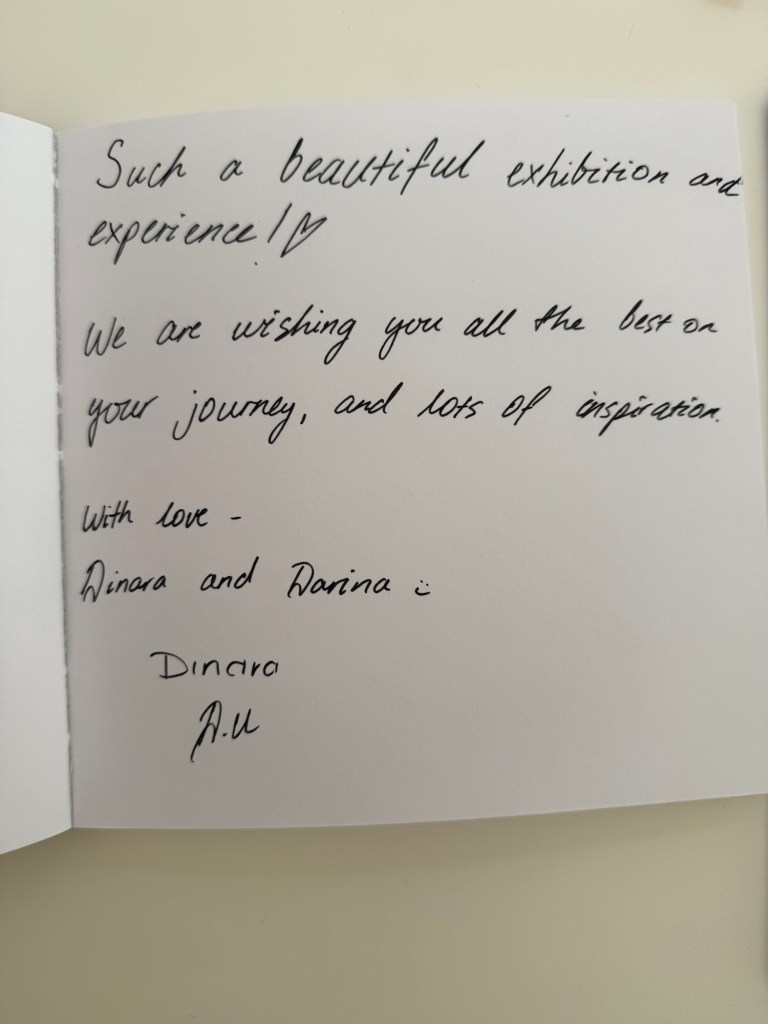 Such a beautiful exhibition and
experience!♡
We are wishing you all the best on
your journey, and lots of inspiration.
With love -
Dinara and Darina :)
Dinara
D.U